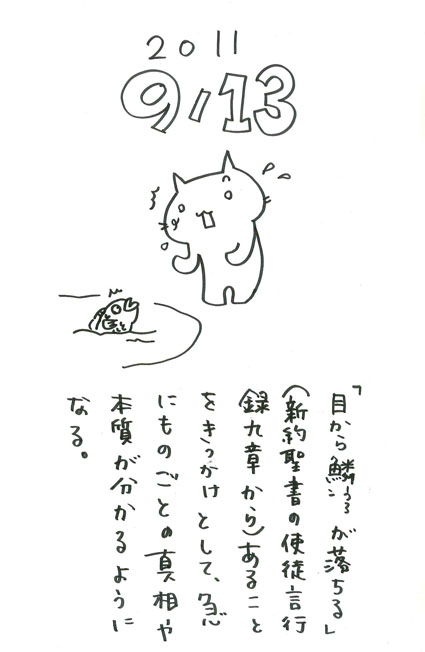 2011
9/13
「目から鱗うろこが落ちる」
(新約聖書の使徒言行
録九章から)あること
をきっかけとして、急
にものごとの真相や
本質が分かるように
なる。